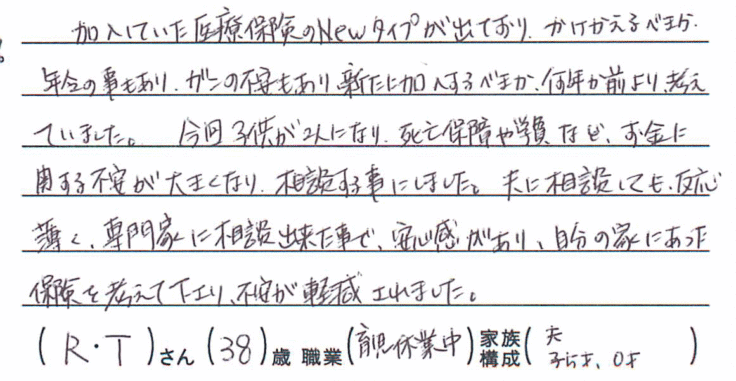 加入していた医療保険のNewタイプが出ており、かけかえるべきか、
年令の事もあり、ガンの不安もあり、新たに加入するべきか、何年か前より、考え
ていました。 今回子供が2人になり、死亡保障や学資など、お金に
関する不安が大きくなり、相談する事にしました。夫に相談しても、反応
薄く、専門家に相談出来た事で、安心感があり、自分の家にあった
保険を考えて下さり、不安が軽減されました。
(R・T)さん (38)歳 職業(育児休業中) 家族構成(夫 子5才、0才)